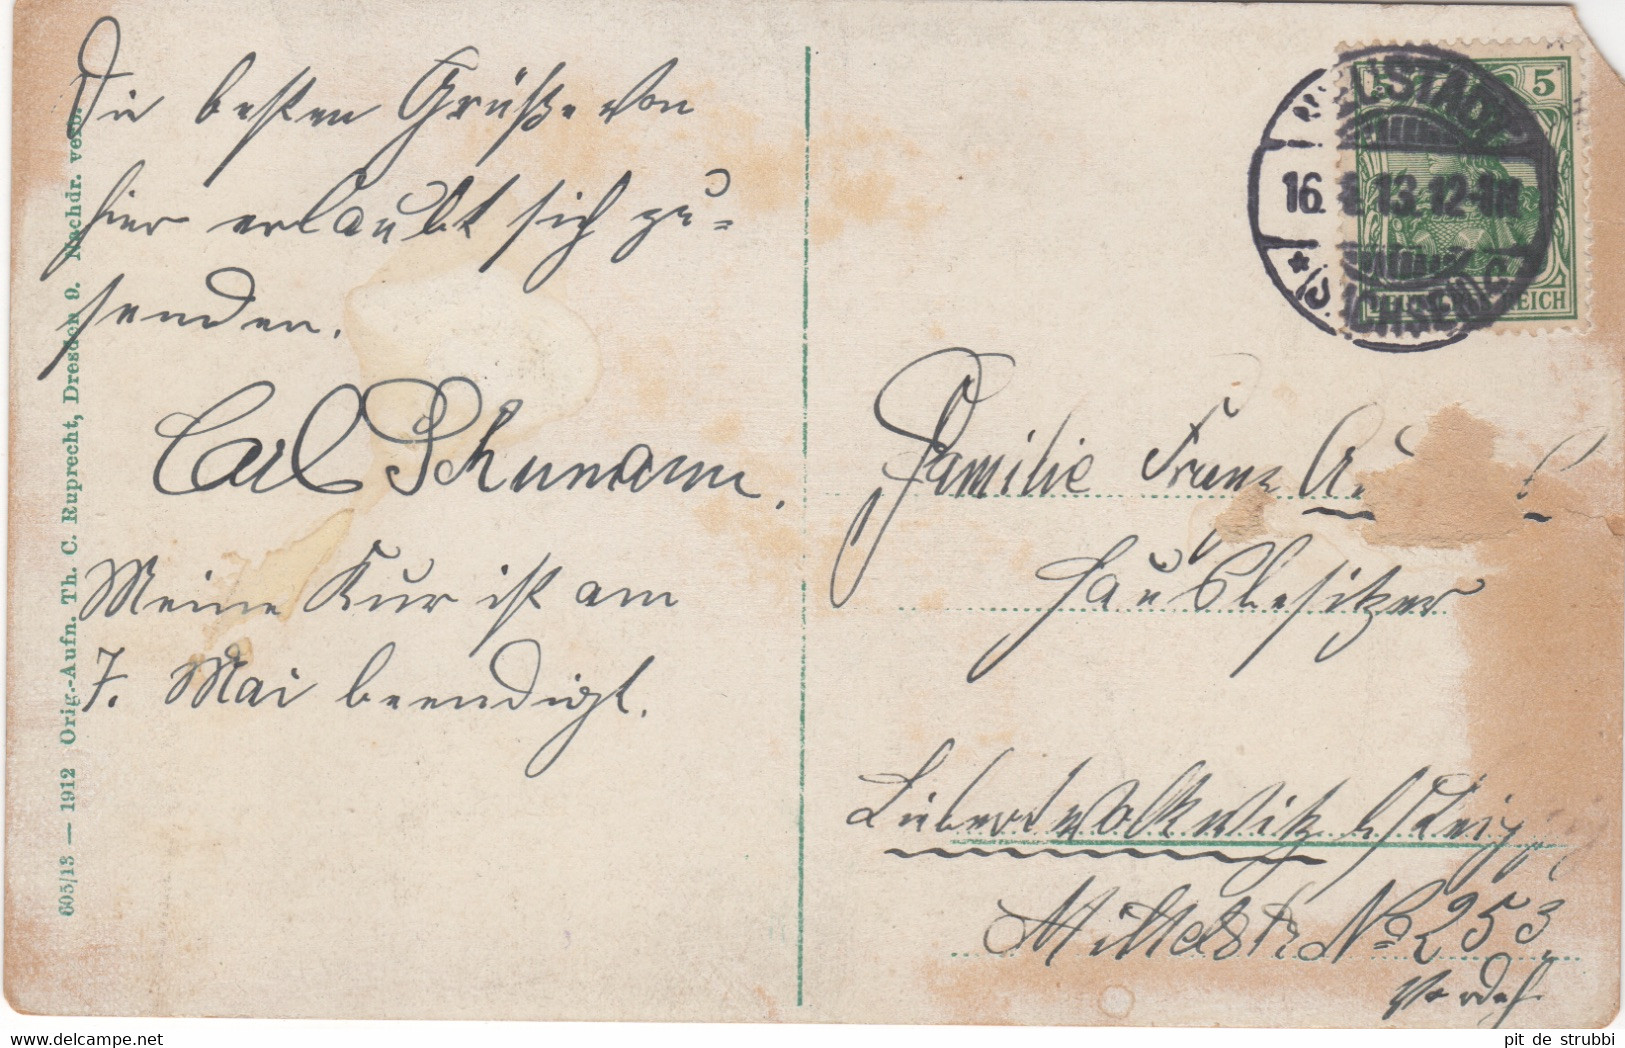 Die besten Grüße von
hier erlaubt sich zu-
senden.
Carl Schumann.
Meine Kur ist am
7. Mai beendigt.
605/13 — 1912 Orig.-Aufn. Th. C. Ruprecht, Dresden 9. Nachdr. verb.
NEUSTADT
16. 13. 12-1N
* (SACHSEN)
5
REICH
Familie Franz
Hausbesitzer
Liebertwolkwitz b/Leipzig
Mittelstr. No 253
pit de strubbi